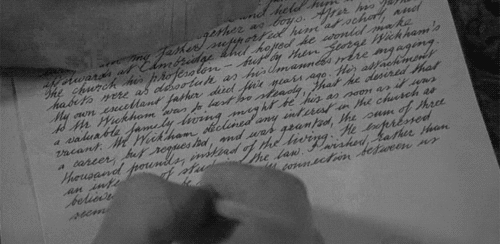 and held him
gether as boys. After his
my father supported him at school, and
afterwards at Cambridge, and hoped he would make
the church his profession – but by then George Wickham's
habits were as dissolute as his manners were engaging.
My own excellent father died five years ago. His attachment
to Mr Wickham was to last so steady, that he desired that
a valuable family living might be his as soon as it was
vacant. Mr Wickham declined any interest in the church as
a career, but requested, and was granted, the sum of three
thousand pounds, instead of the living. He expressed
an inte of studying the law. I wished, rather than
believe connection between us
seem